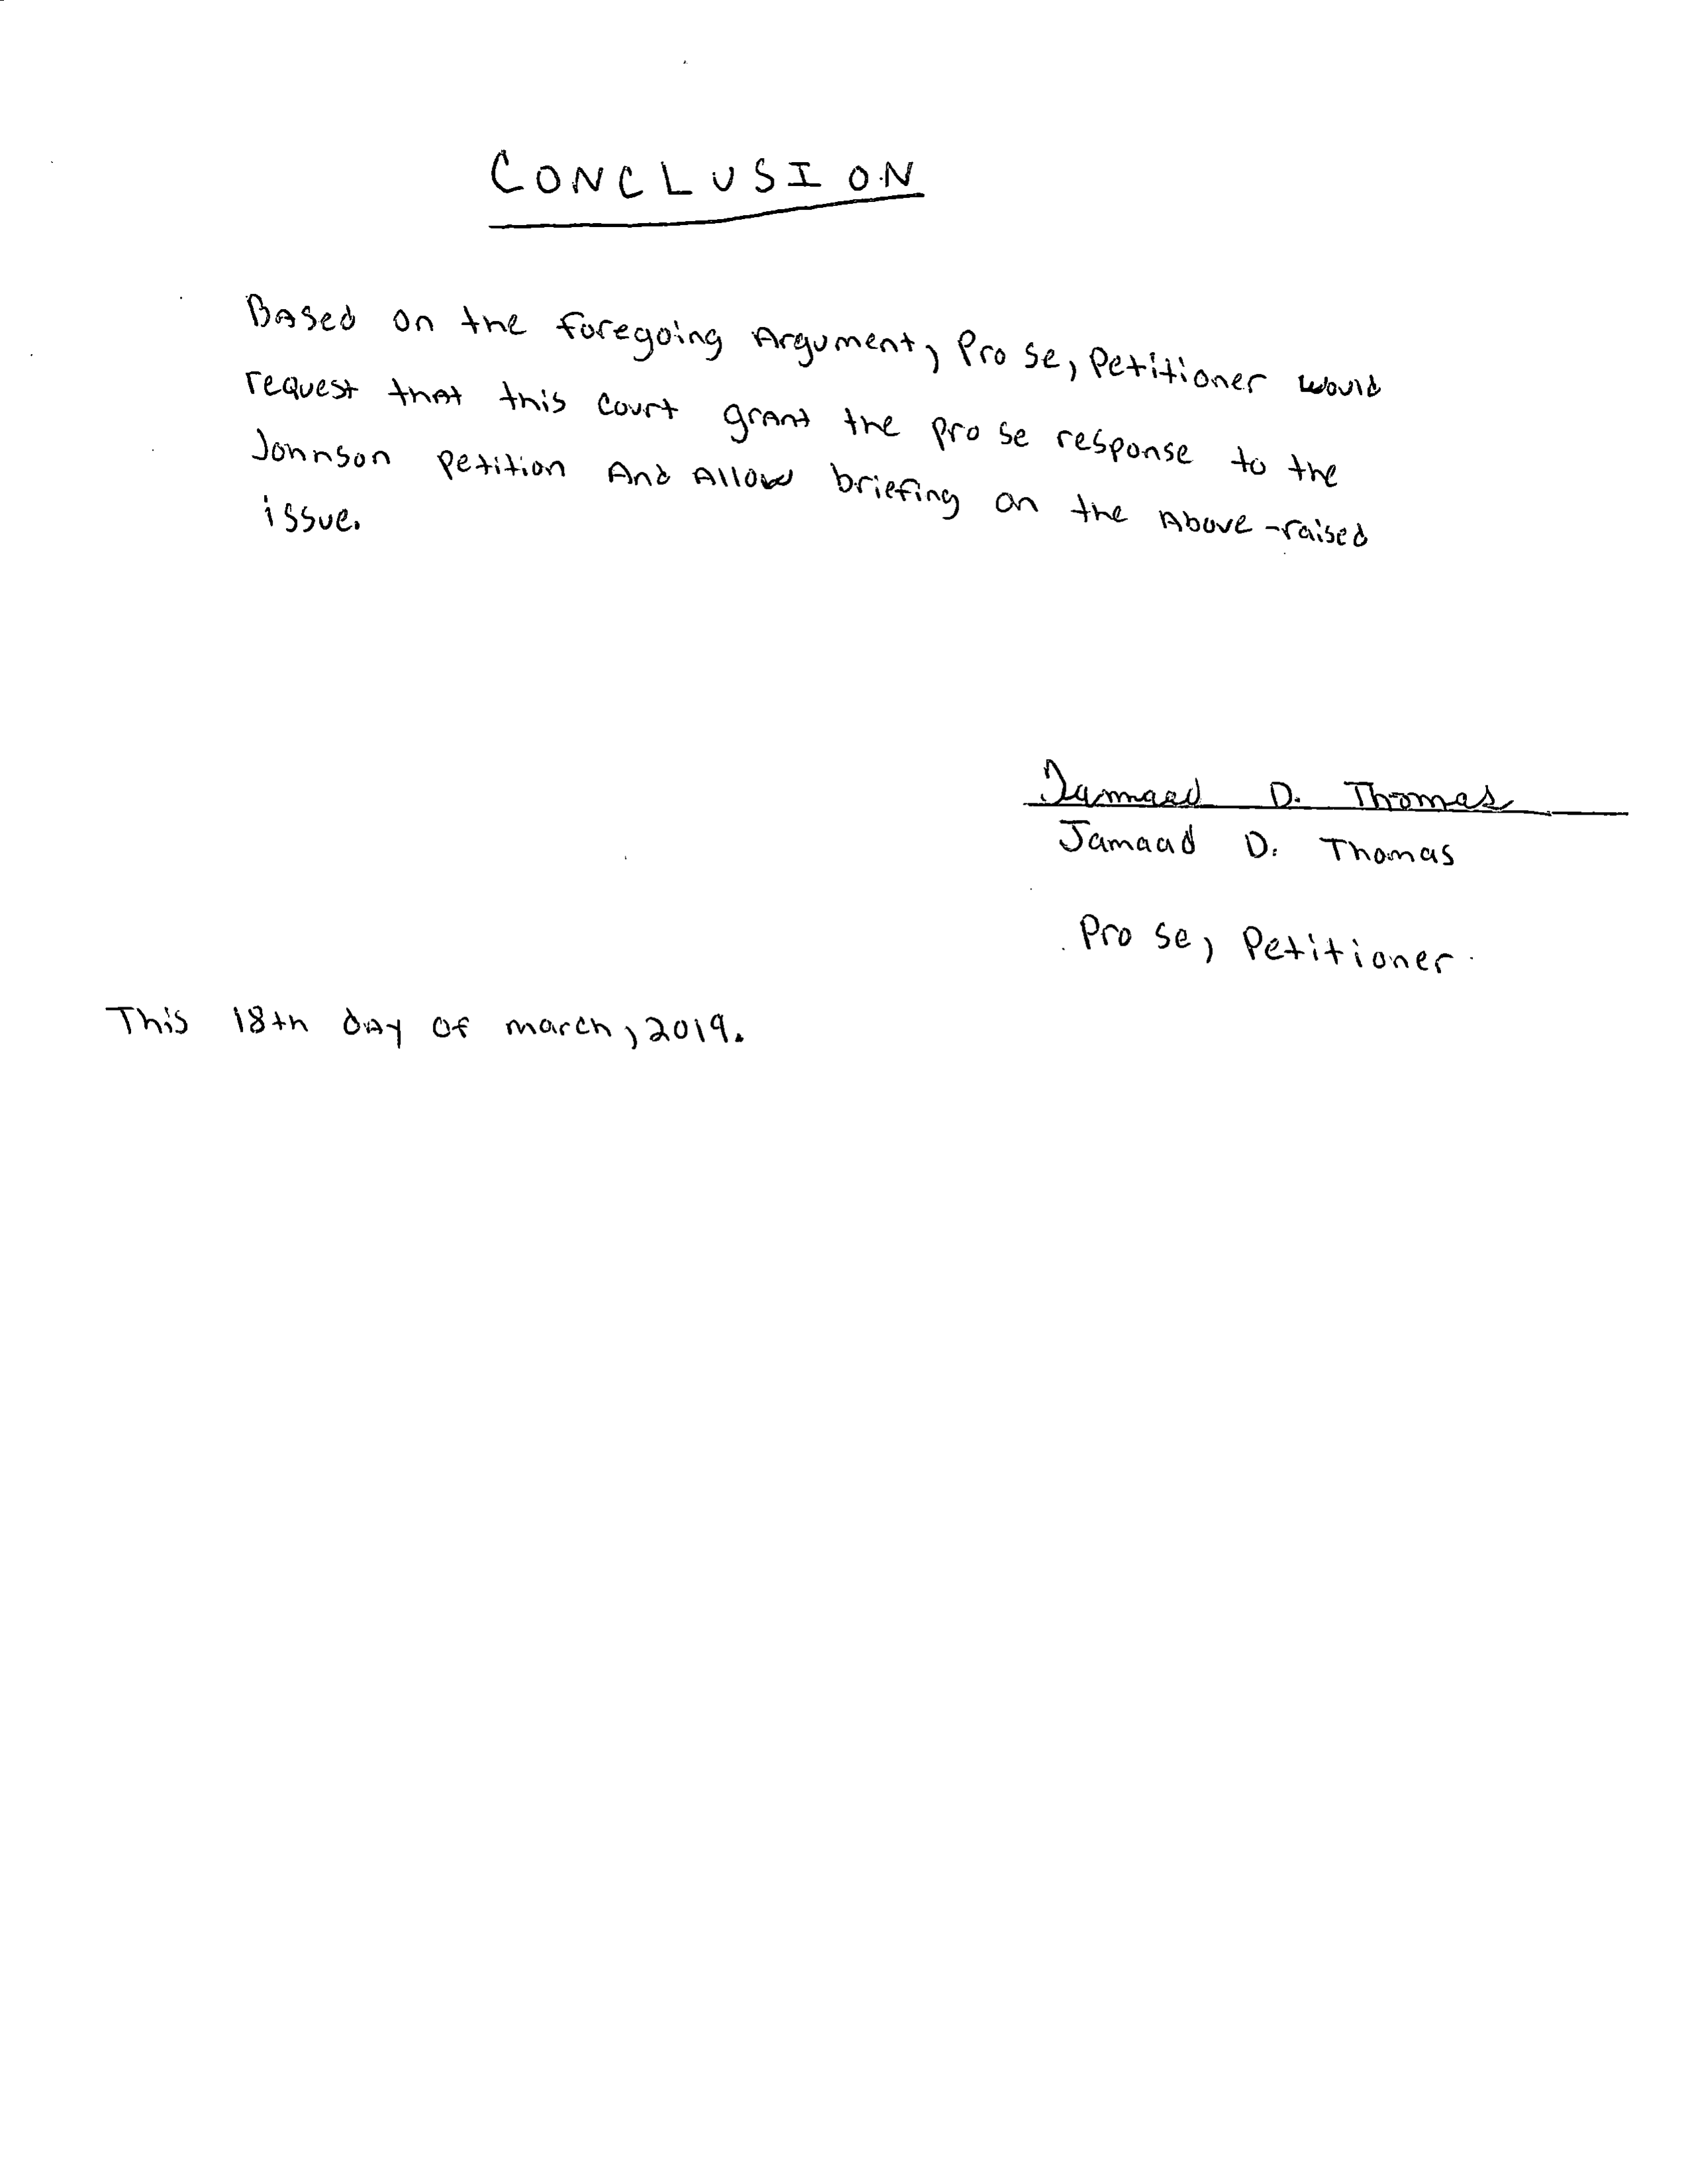 CONCLUSION
Based on the foregoing Argument, Pro se, Petitioner would
request that this court grant the pro se response to the
Johnson petition And Allow briefing on the Above-raised
issue.
Jamaad D. Thomas
Jamaad D. Thomas
Pro se, Petitioner
This 18th day of march, 2019.